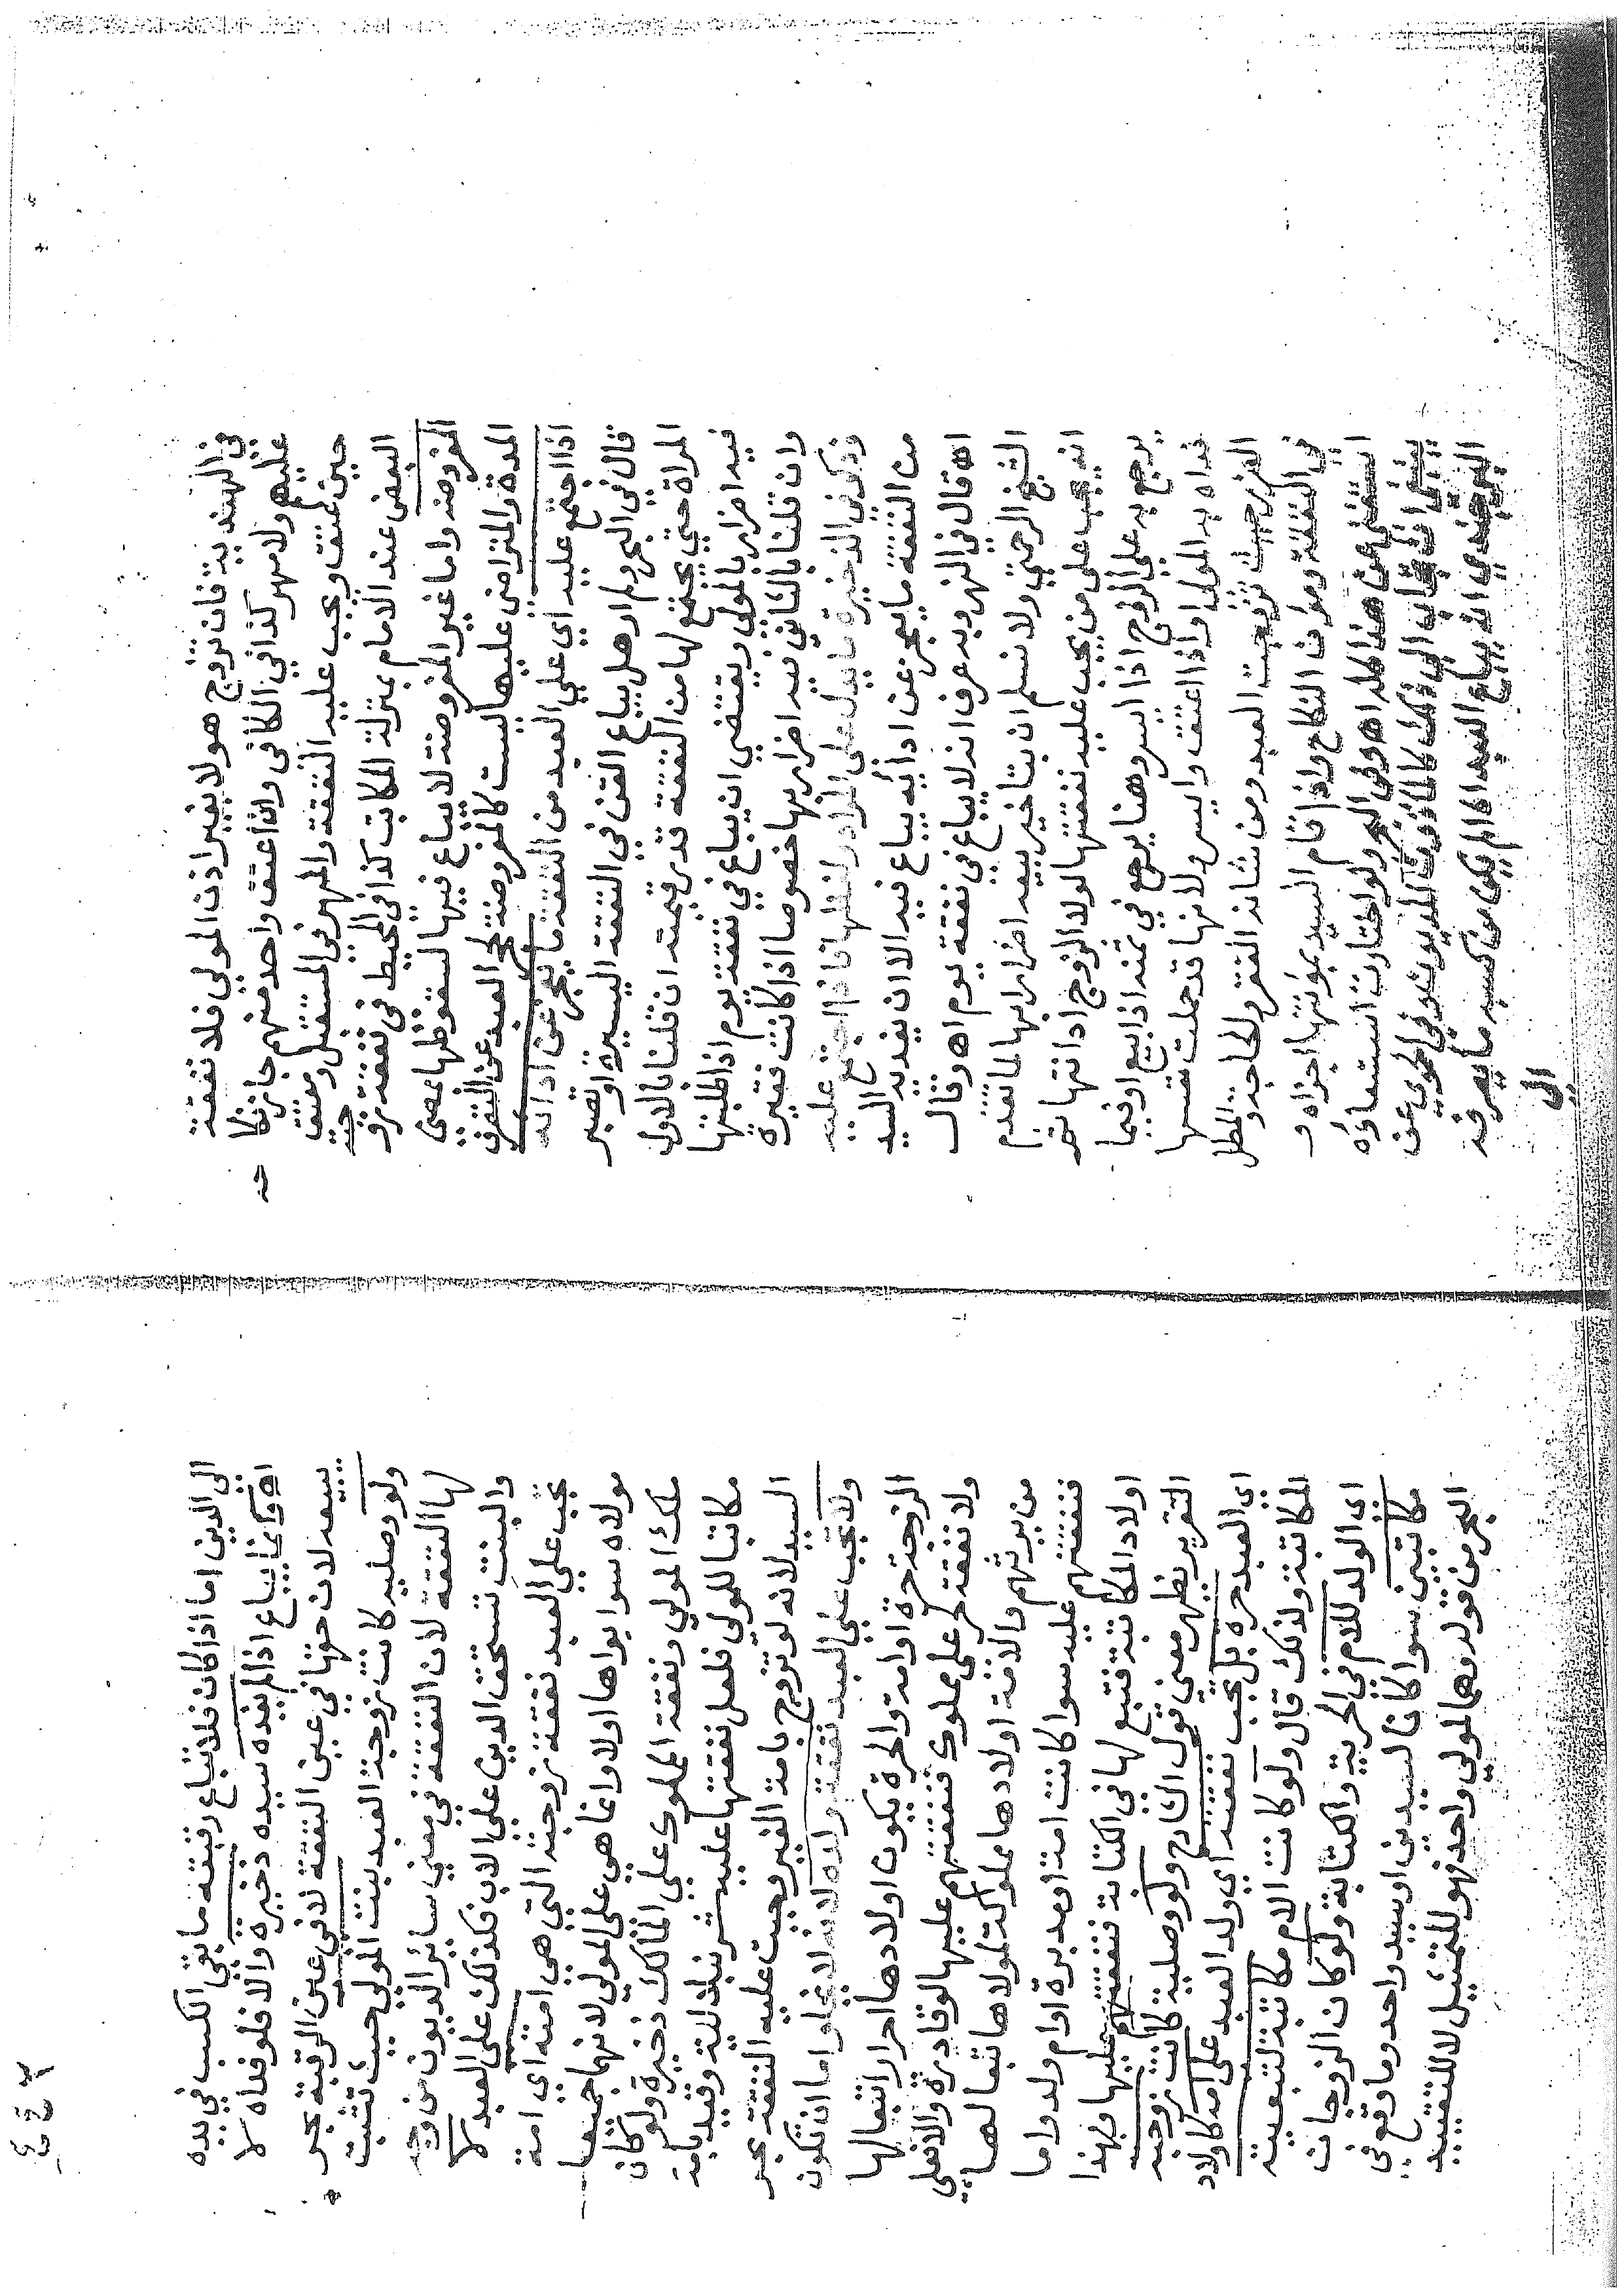 في الهندية فان تزوج هولا بغير اذن المولي فلا نفقة
عليهم ولا مهر كذا في الكافي وان اعتق واحد منهم جاز نكا
حه
حين عتق ويجب عليه النفقة والمهر في المستقبل ومعتق
البعض عند الامام بمنزلة المكاتب كذا في المحيط في نفقة زو
جته
المفروضة واما غير المفروضة لا يباع فيها لسقوطها بمضي
المدة والمتراضي عليها ليست كالمفروضة لحجر العبد عن التصرف
اذا اجتمع عليه اي علي العبد من النفقة ما يعجز عن ادائه
قال في البحر ولم ار هل يباع القن في النفقة اليسيرة او تصبر
المراة حتي يجتمع لها من النفقة قدر قيمته ان قلنا بالاول
فيه اضرار بالمولي ويقتضي ان يباع في نفقة يوم اذا طلبتها
وان قلنا بالثاني فيه اضرار بها خصوصا اذا كانت فقيرة
وذكر في الذخيرة ما يدل علي المراد ولفظها فاذا اجتمع عليه
من النفقة ما يعجز عن ادائه يباع فيه الا ان يفديه السيد
اه قال في النهر وبه عرف انه لا يباع في نفقة يوم اه وقال
الشيخ الرحمتي ولا نسلم ان بتاخير بيعه اضرارا بها لما تقدم
انه يجب علي من يجب عليه نفقتها لولا الزوج ادانتها ثم
يرجع به علي الزوج اذا ايسر وهنا يرجع في ثمنه اذا بيع او فيما
فداه به المولي او اذا اعتق وايسر ولانها قد حملت نفسها
الضرر حيث تزوجت العبد ومن شانه الفقر والحاجة والمطل
في النفقة ومؤن النكاح واذا قام السيد بمؤنتها اجزاه و
استغني عن هذا كله اه وفي البحر ولو اختارت استسعاؤه
ينبغي ان تجاب الي ذلك كالماذون المديون وفي الحموي عن
البرجندي انه يباع العبد اذا لم يكن من كسبه ما يصرفه
الي
الي الدين اما اذا كان فلا تباع رقبته ما بقي الكسب في يده
اه وانما يباع اذا لم يفده سيده ذخيرة والا فلو فداه لا
يبيعه لان حقها في عين النفقة لا في عين الرقبة بحر
ولو وصلية كانت زوجة العبد بنت المولي حيث تثبت
لها النفقة لان النفقة في معني سائر الديون من وجه
والبنت تستحق الدين علي الاب فكذلك علي العبد لا
يجب علي العبد نفقة زوجته التي هي امته اي امة
مولاه سوا بواها اولا وانما هي علي المولي لانهما جميعا
ملك المولي ونفقة المملوك علي المالك ذخيرة ولو كان
مكاتبا للمولي فلعل نفقتها عليه شرنبلالية وقيد بامة
السيد لانه لو تزوج بامة الغير وجبت عليه النفقة بحر
ولا تجب علي العبد نفقة ولده لانه لا يخلوا اما ان تكون
الزوجة حرة او امة والحرة يكون اولادها احرارا تبعا لها
ولا نفقة لحر علي مملوك فنفقتهم عليها لو قادرة والا فعلي
من يرثهم والامة اولادها مملوكة لمولاها تبعا لها
فنفقتهم عليه سوا كانت امة او مدبرة او ام ولد واما
اولاد المكاتبة فتبع لها في الكتابة فنفقتهم عليها وبهذا
التقرير يظهر معني قول الشارح ولو وصلية كانت زوجة
اي العبد حرة بل يجب نفقته اي ولد العبد علي امه كاولاد
المكاتبة ولذلك قال ولو كانت الام مكاتبة لتبعية
اي الولد للام في الحرية والكتابة ولو كان الزوجان
مكاتبين سوا كانا لسيدين او سيد واحد وما وقع في
البحر من قوله وهما لمولي واحد فهو للتمثيل لا للتقييد